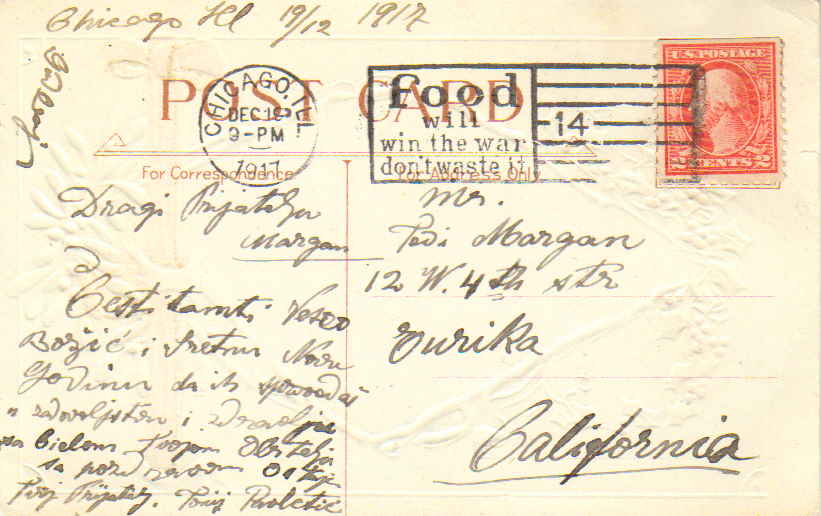 Chicago Ill 19/12 1917
POST CARD
CHICAGO, ILL.
DEC 19
9-PM
1917
food
will
win the war
don't waste it
14
U.S. POSTAGE
2 CENTS 2
For Correspondence
For Address Only
Dragi Prijatelju
Margan
Cestitamti Veseo
Božić i Sretnu Novu
Godinu da ih sprovodaš
u zadovoljstvu i zdravlju
sa Cielom Tvojom Obitelju
sa pozdravom Ostaje
Tvoj Prijatelj. Tony Pavletić
Mr.
Tedi Margan
12 W. 4th str
Eurika
California